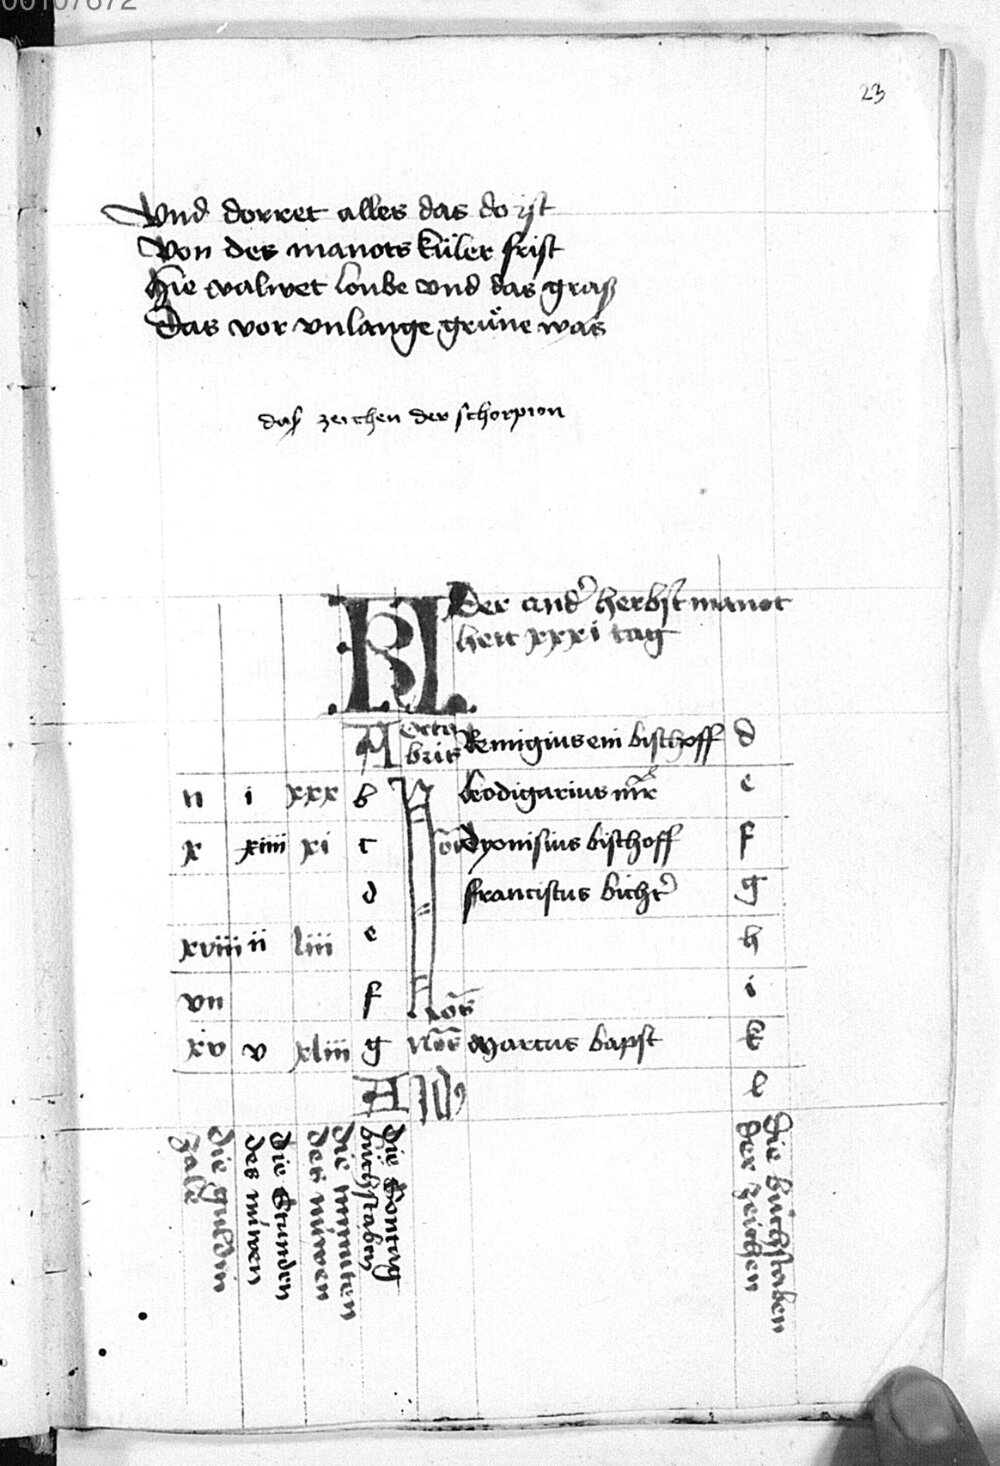 00107672
23
Vnd dorret alles das do ist
Von des manots küler frist
Hie valwet loube vnd das graß
Das vor vnlange grüne was
das zeichen der schorpion
KL Der ander herbstmanot
hett xxxi tag
A Octobris Remigius ein bischoff d
ii i xxx b Leodigarius mr e
x xiiii xi c Dyonisius bischoff f
d Franciscus bichtr g
xviii ii liii e h
vii f Nos i
xv v xliii g Nos Marcus bapst k
A l
die guldin
zale
die Stunden
des núwen
die minuten
des núwen
die Sontag
bůchstaben
die bůchstaben
der zeichen